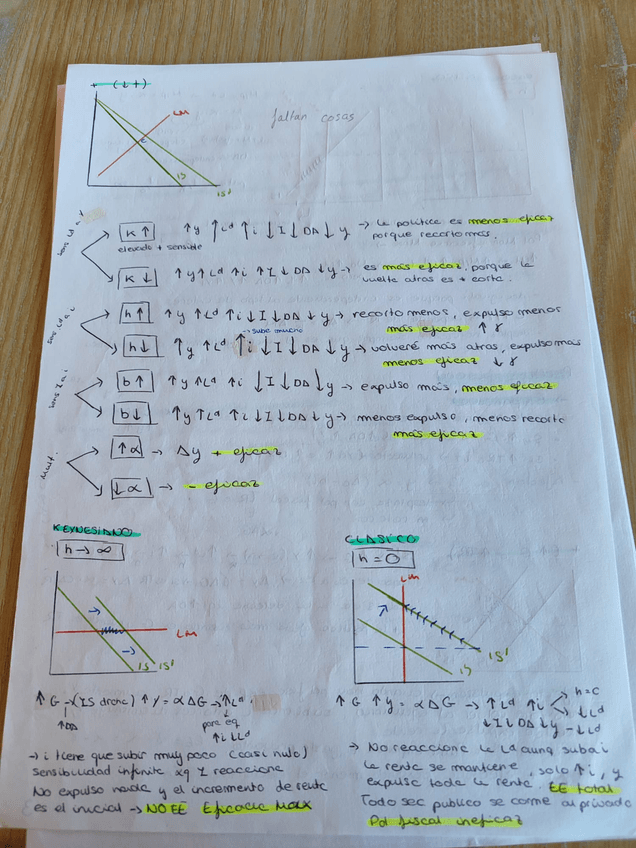 + (↓ t)
LM
fallan cosas
E
IS
IS'
sens Ld a Y
K ↑
↑y ↑Ld ↑i ↓I ↓DA ↓y → la política es menos eficaz
elevado + sensible
porque recorto más.
K ↓
↑y ↑Ld ↑i ↑I ↓DA ↓y → es más eficaz, porque la
vuelta atras es + corta.
sens Ld a i
h ↑
↑y ↑Ld ↑i ↓I ↓DA ↓y → recorto menos, expulso menor
más eficaz ↑ γ
→ sube mucho
h ↓
↑y ↑Ld ↑i ↓I ↓DA ↓y → volveré más atras, expulso mas
menos eficaz ↓ γ
sens I a i
b ↑
↑y ↑Ld ↑i ↓I ↓DA ↓y → expulso más, menos eficaz
b ↓
↑y ↑Ld ↑i ↓I ↓DA ↓y → menos expulso, menos recorte
más eficaz
Mult.
↑ α → Δy + eficaz
↓ α → - eficaz
KEYNESIANO
h → ∞
LM
IS IS'
CLASICO
h = 0
LM
IS'
IS
↑ G → (IS drcha) ↑ Y = α Δ G → ↑ Ld
↑ DA
para eq
↑i ↓ Ld
→ i tiene que subir muy poco (casi nulo)
sensibilidad infinita xq I reacciona
No expulso nada y el incremento de renta
es el inicial → NO EE Eficacia Max
↑ G ↑ y = α ΔG → ↑ Ld ↑ i
h=0
↓ Ld
↓I ↓ DA ↓y - ↓ Ld
→ No reacciona la Ld aunq suba i
la renta se mantiene, solo ↑ i, y
expulsa toda la renta. EE total
Todo sec publico se come al privado
Pol fiscal ineficaz